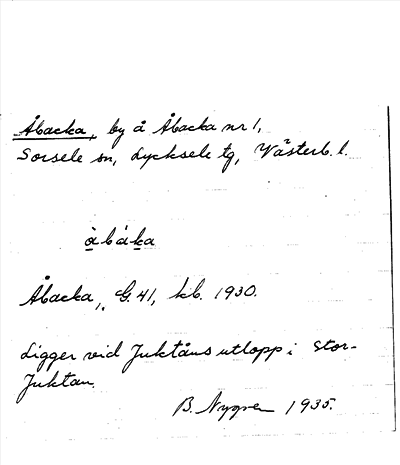 Åbacka, by å Åbacka nr 1,
Sorsele sn, Lycksele tg, Västerb. l.
àbáka
Åbacka, G. 41, kb. 1930.
Ligger vid Juktåns utlopp i Stor-
Juktan.
B. Nygren 1935.